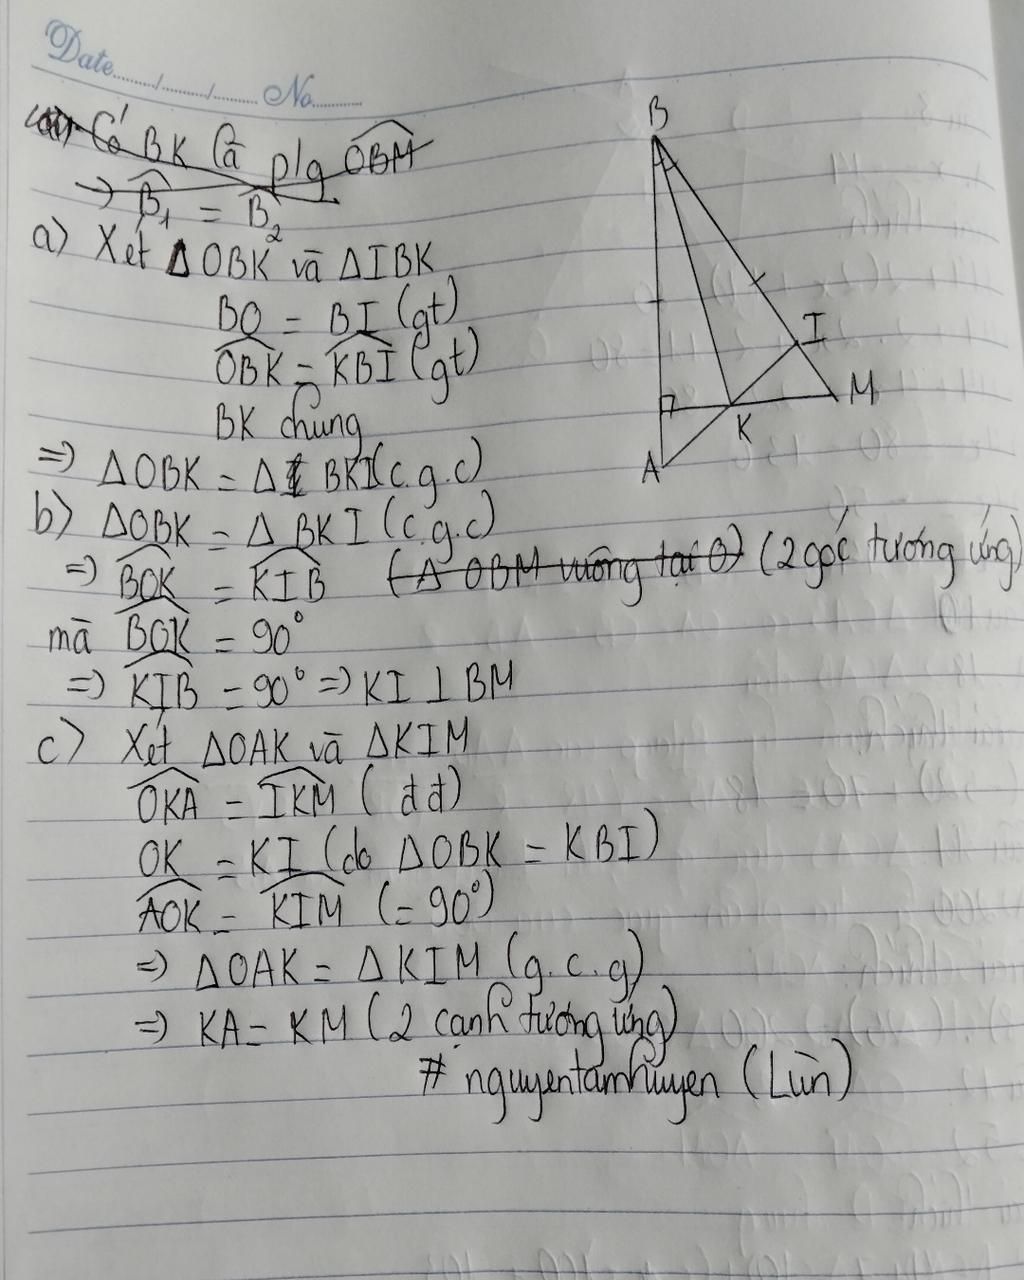 Date......./......../......... No...........
Có BK là p/g OBM
→ B1 = B2
a) Xét ΔOBK và ΔIBK
BO = BI (gt)
OBK = KBI (gt)
BK chung
=> ΔOBK = Δ BKI (c.g.c)
b) ΔOBK = Δ BKI (c.g.c)
=> BOK = KIB (Δ OBM vuông tại O) (2 góc tương ứng)
mà BOK = 90°
=> KIB = 90° => KI ⊥ BM
c) Xét ΔOAK và ΔKIM
OKA = IKM (đđ)
OK = KI (do ΔOBK = KBI)
AOK = KIM (= 90°)
=> ΔOAK = ΔKIM (g.c.g)
=> KA = KM (2 cạnh tương ứng)
# nguyentamhuyen (Lùn)
B
I
M
K
A